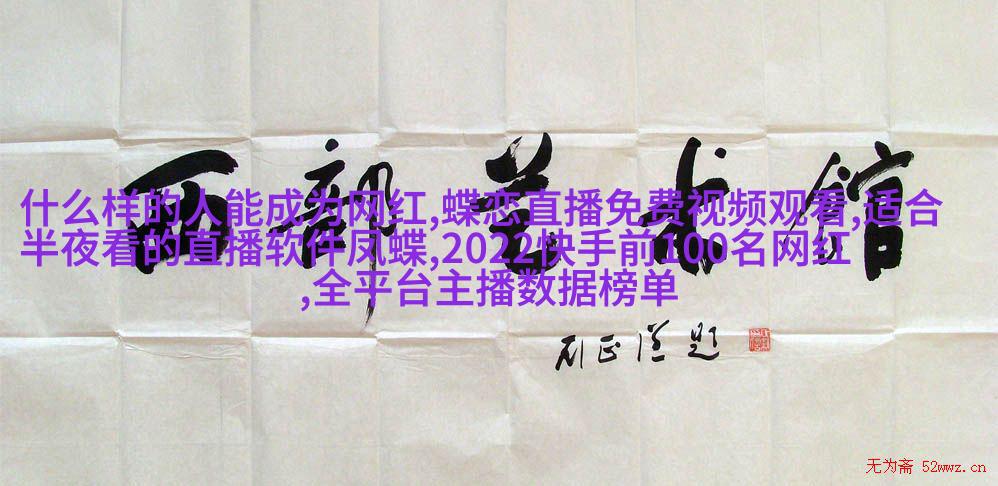 西部艺术馆
什么样的人能成为网红,蝶恋直播免费视频观看,适合
半夜看的直播软件凤蝶,2022快手前100名网红
,全平台主播数据榜单
正 题
无为斋 52wwz.cn